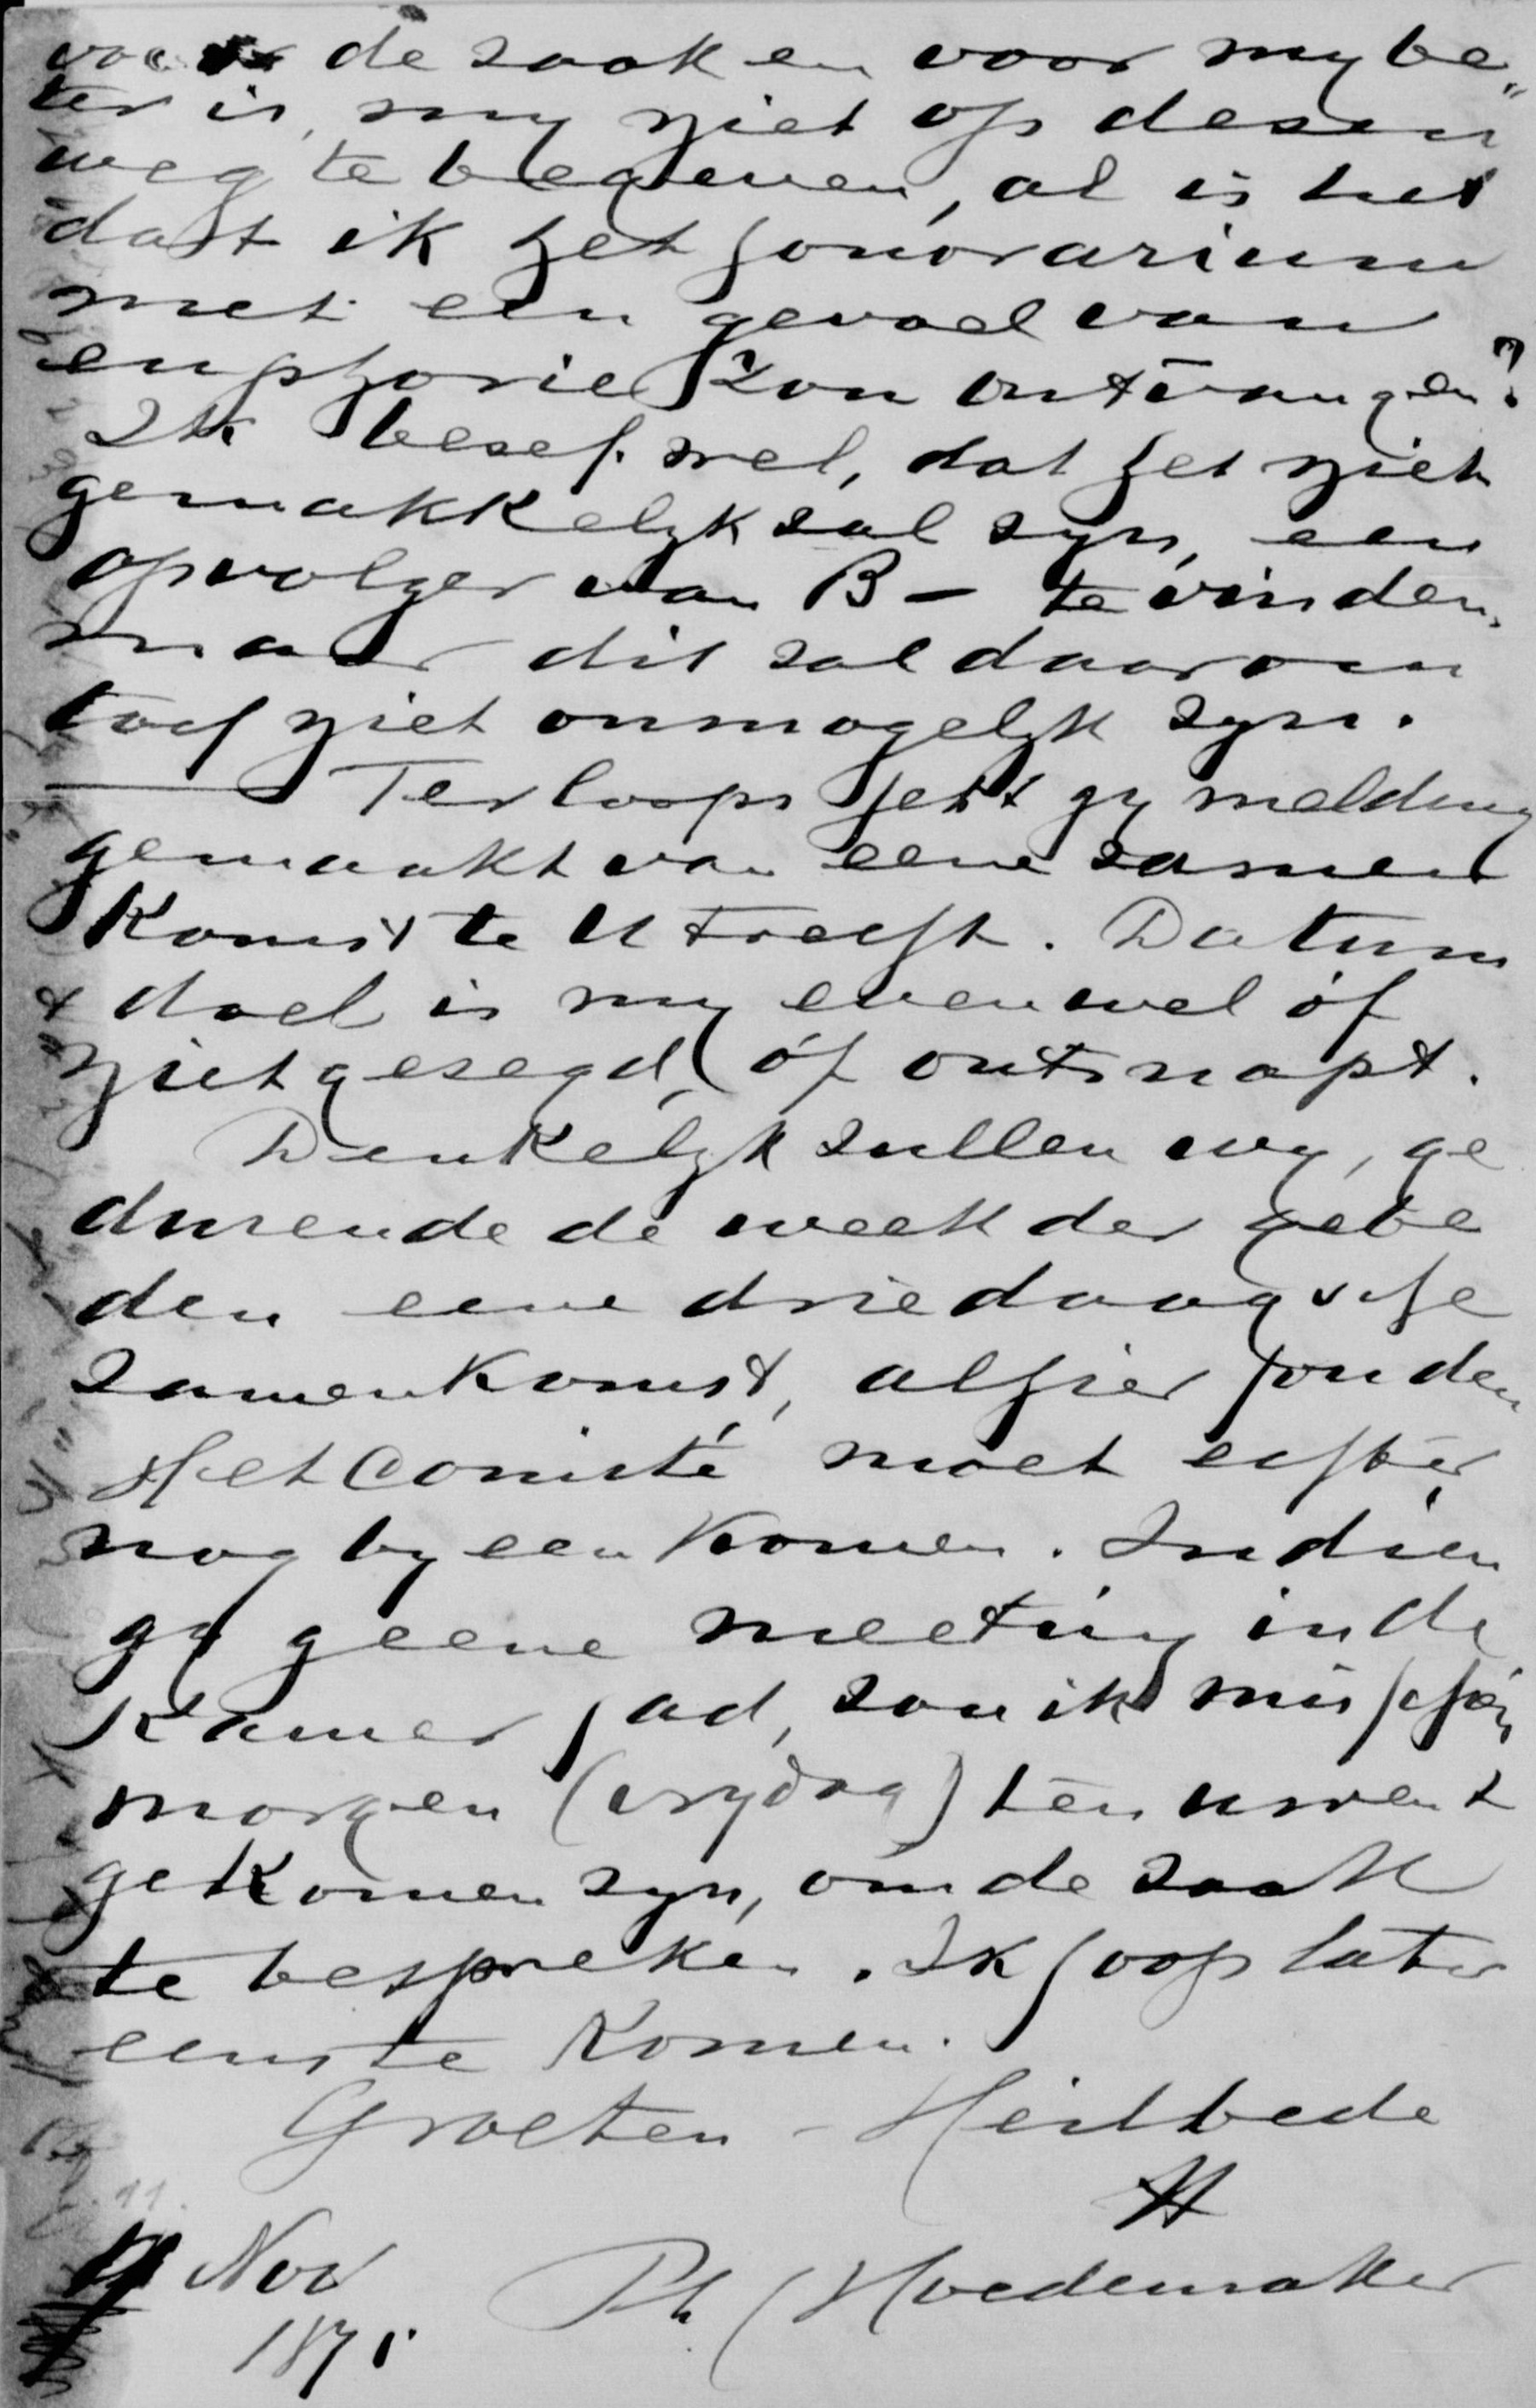 voor de zaak en voor my be„
ter is, my niet op dezen
weg te begeven, al is het
dat ik het honorarium
met een gevoel van
euphorie kon ontvangen?
Ik besef wel, dat het niet
gemakkelyk zal zyn, een
opvolger van B – te vinden,
maar dit zal daarom
toch niet onmogelyk zyn.
— Terloops hebt gy melding
gemaakt van eene zamen
komst te Utrecht. Datum
& doel is my evenwel óf
niet gezegd, óf ontsnapt.
Denkelyk zullen wy, ge
durende de week der gebe
den eene driedaagsche
zamenkomst, alhier houden
Het Comité moet echter
nog byeen komen. Indien
gy geene meeting in de
Kamer had, zou ik misschien
morgen (vrydag) ten uwent
gekomen zyn, om de zaak
te bespreken. Ik hoop later
eens te komen.
Groeten – Heilbede
tt
11.
11 Nov Ph J Hoedemaker
1875